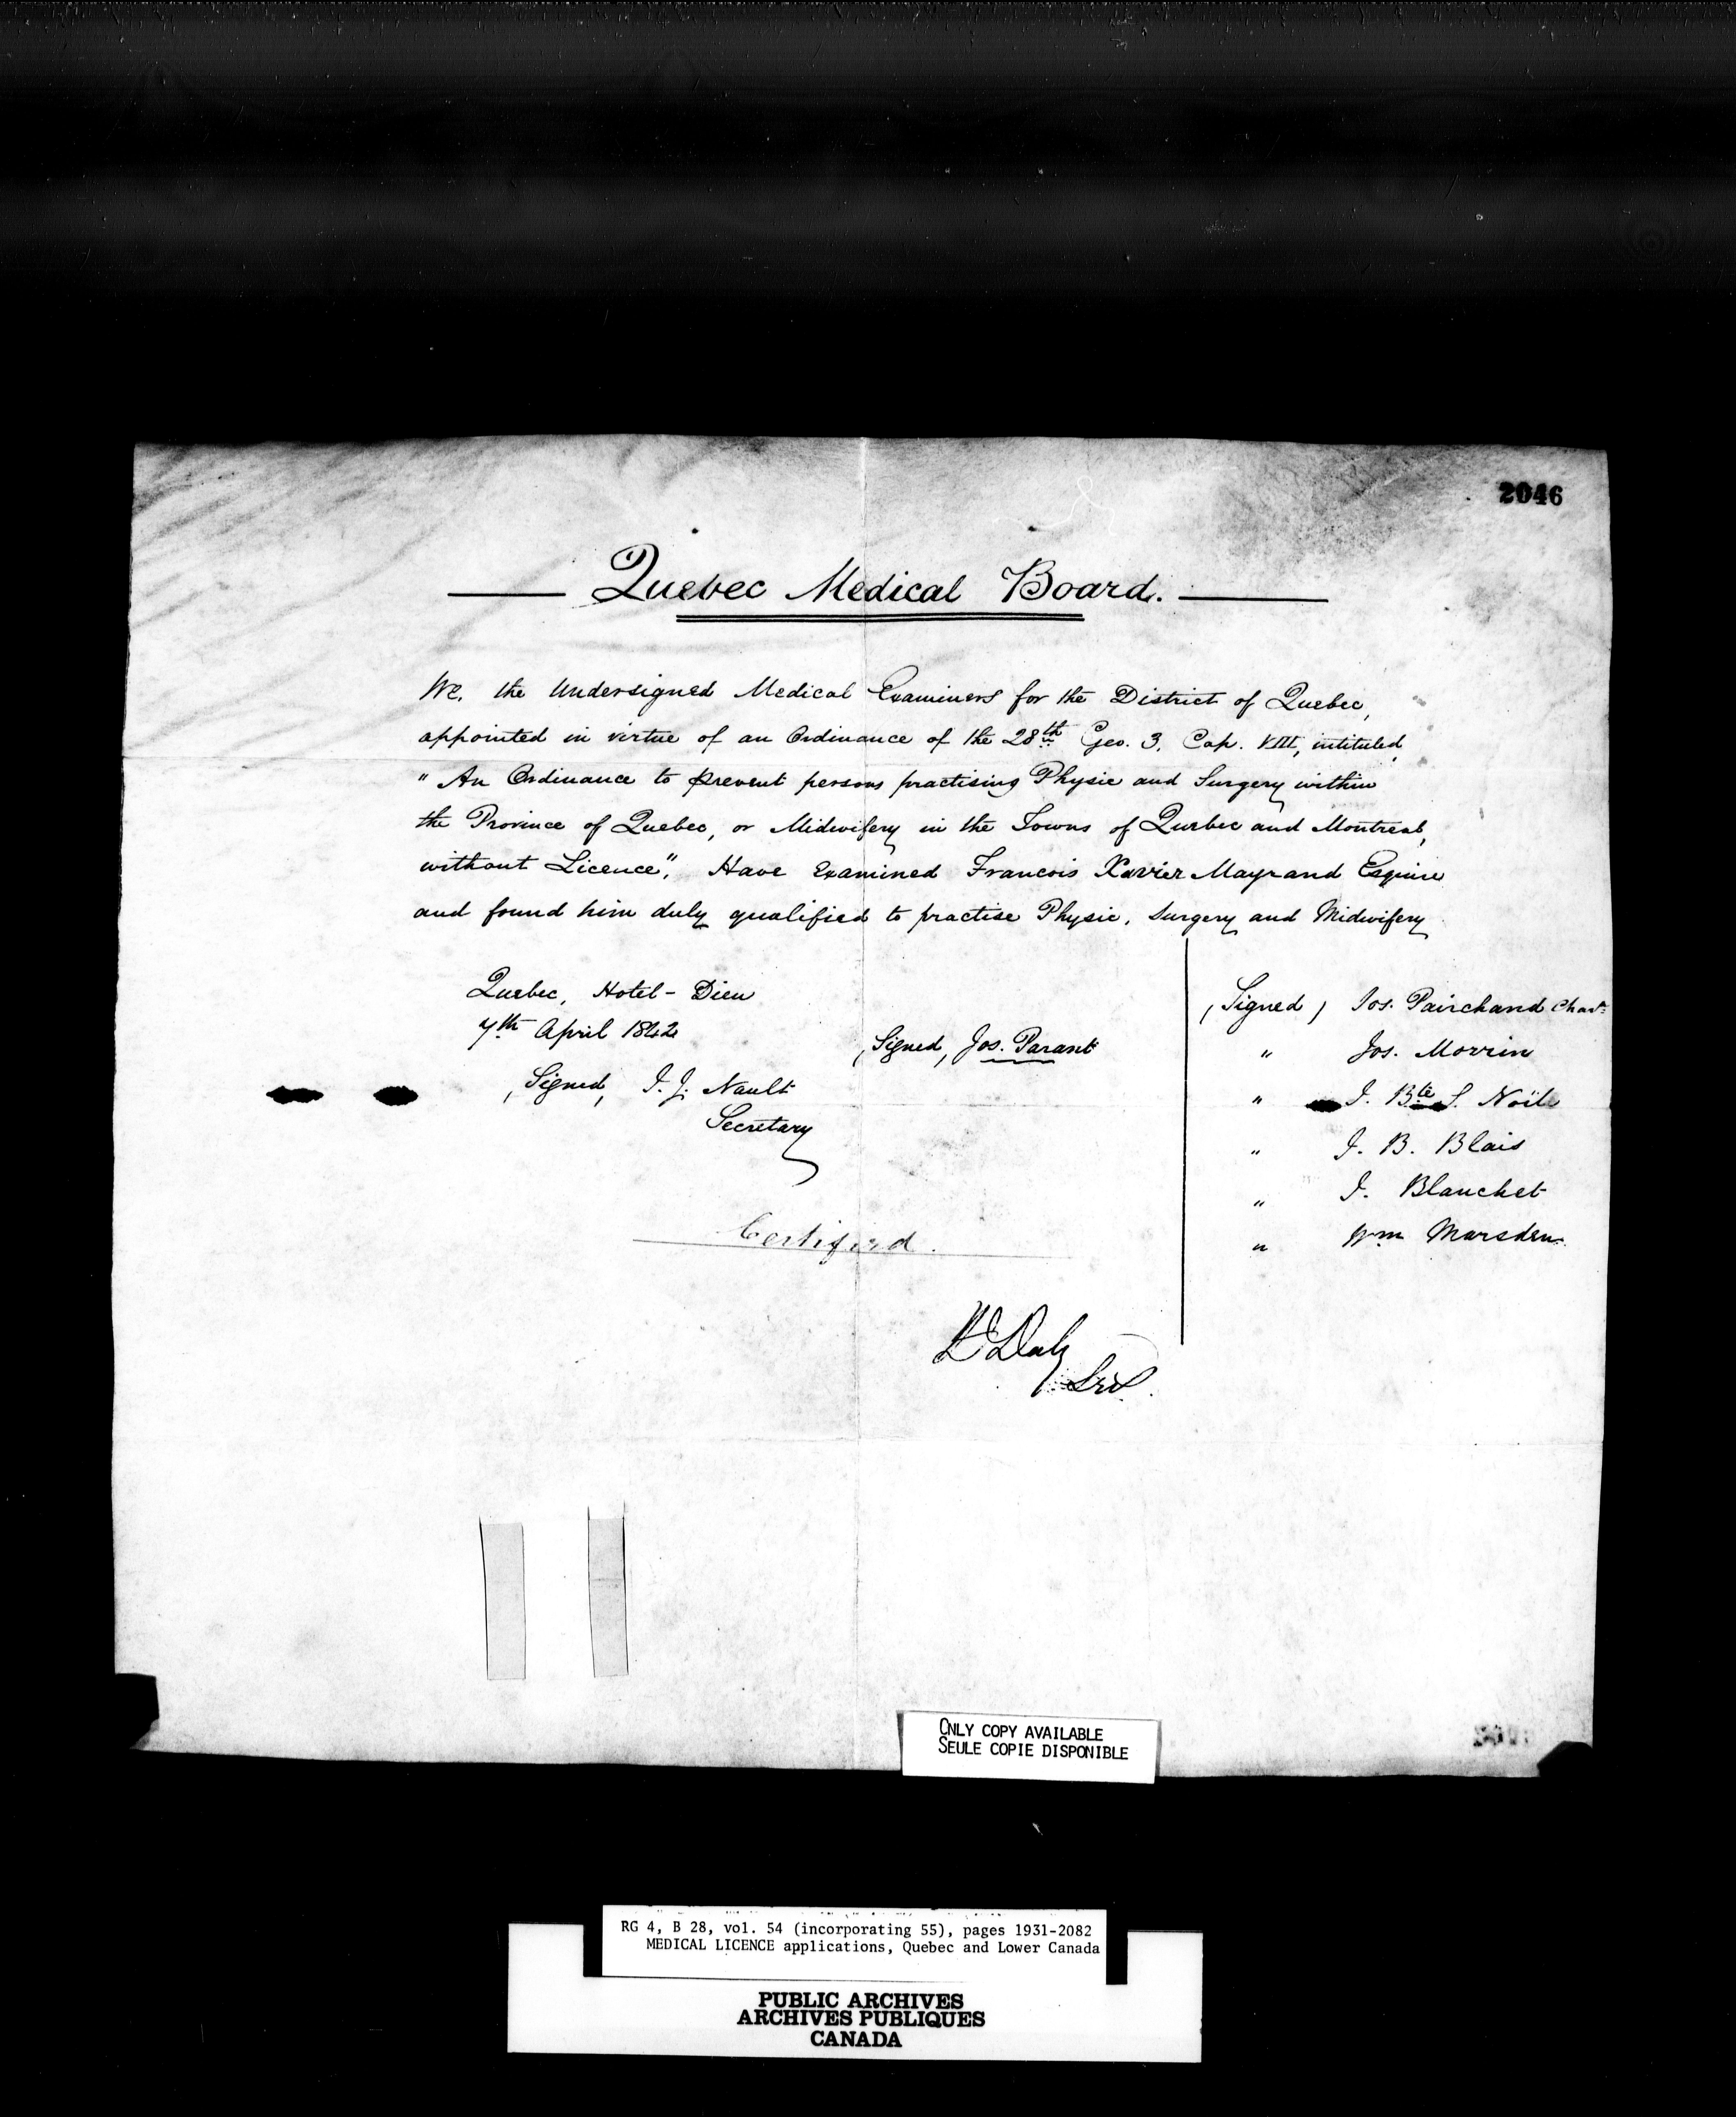 2046
Quebec Medical Board.
We, the Undersigned Medical Examiners for the District of Quebec,
appointed in virtue of an Ordinance of the 28th Geo. 3. Cap. VIII, intituled,
"An Ordinance to prevent persons practising Physic and Surgery within
the Province of Quebec, or Midwifery in the Towns of Quebec and Montreal,
without Licence", Have Examined Francois Xavier Mayrand Esquire
and found him duly qualified to practise Physic, Surgery and Midwifery
Quebec, Hotel-Dieu
7th April 1842
(Signed) J. Z. Nault
Secretary
(Signed) Jos. Parant
(Signed) Jos. Painchaud
" Jos. Morrin
" J. Bte S. Noël
" J. B. Blais
" J. Blanchet
" Wm Marsden
Certified.
D Daly
Sec
ONLY COPY AVAILABLE
SEULE COPIE DISPONIBLE
RG 4, B 28, vol. 54 (incorporating 55), pages 1931-2082
MEDICAL LICENCE applications, Quebec and Lower Canada
PUBLIC ARCHIVES
ARCHIVES PUBLIQUES
CANADA